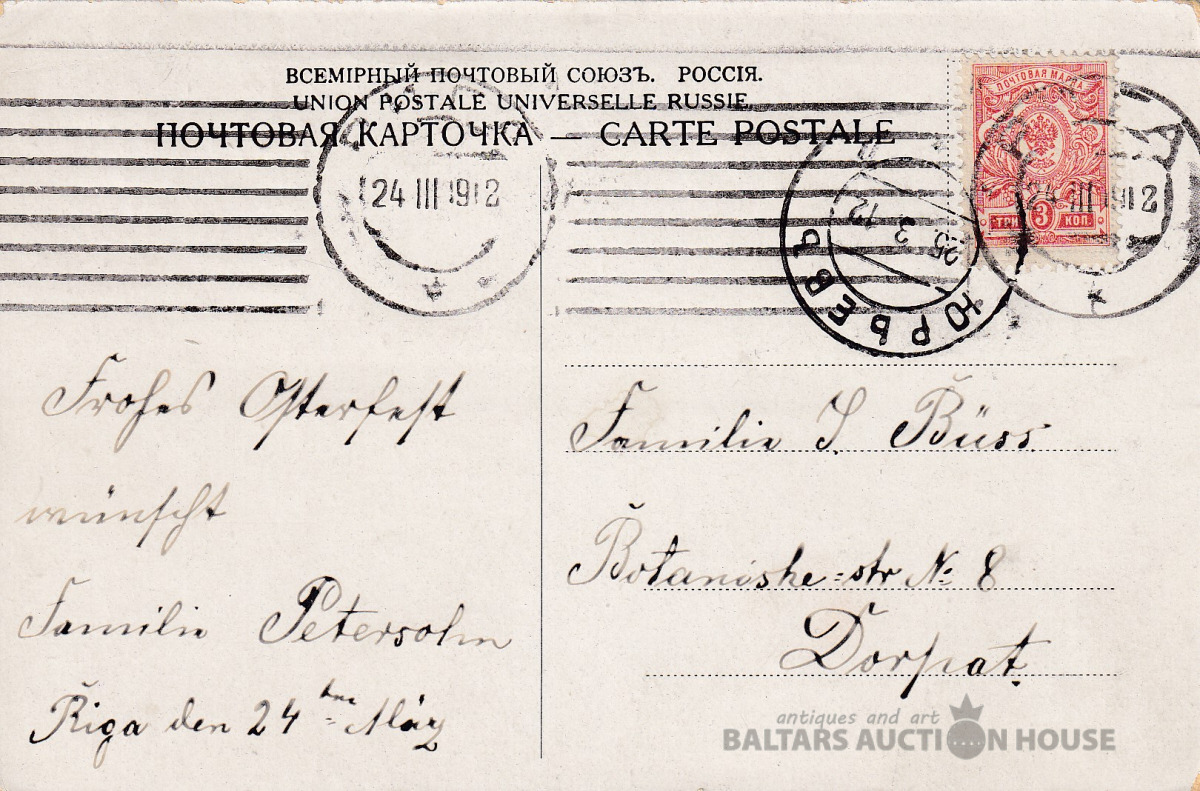 ВСЕМІРНЫЙ ПОЧТОВЫЙ СОЮЗЪ. РОССІЯ.
UNION POSTALE UNIVERSELLE RUSSIE.
ПОЧТОВАЯ КАРТОЧКА — CARTE POSTALE
ПОЧТОВАЯ МАРКА
ТРИ 3 КОП.
24 III 1912
24 III 1912
ЮРЬЕВЪ
25 3 12
Frohes Osterfest
wünscht
Familie Petersohn
Riga den 24 März
Familie J. Büss.
Botanishe=str № 8
Dorpat.
antiques and art
BALTARS AUCTION HOUSE